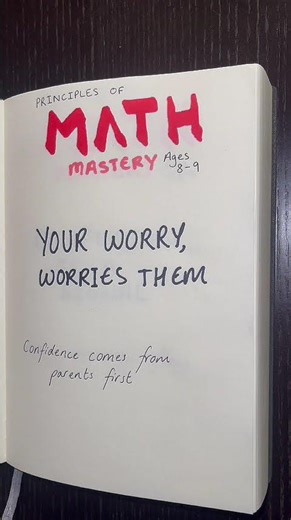 PRINCIPLES OF
MATH
MASTERY Ages
8-9
YOUR WORRY,
WORRIES THEM
Confidence comes from
parents first